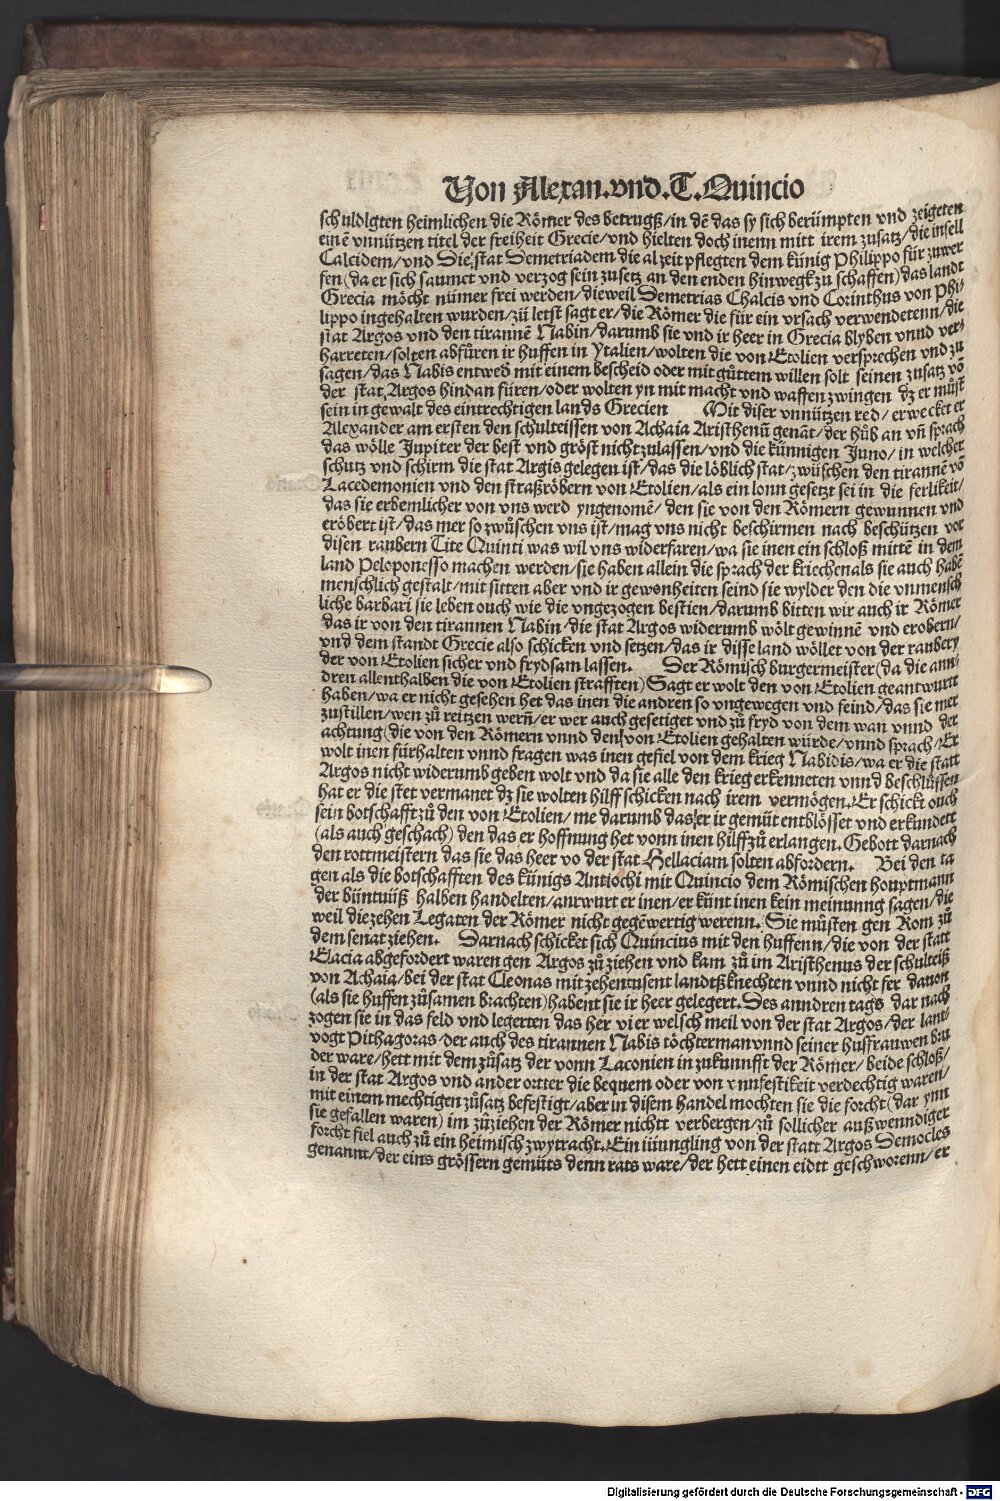 Von Alexan.vnd.T.Quincio
schuldigten heimlichen die Römer des betrugß/in dē das sy sich berümpten vnd zeigeten
einē vnnützen titel der freiheit Grecie/vnd hielten doch inenn mitt irem zusatz/die insell
Calcidem/vnd Die stat Demetriadem die al zeit pflegten dem künig Philippo für zuwer
fen(da er sich saumet vnd verzog sein zusetz an den enden hinwegk zu schaffen)das landt
Grecia möcht nümer frei werden/dieweil Demetrias Chalcis vnd Corinthus von Phi-
lippo ingehalten wurden/zů letst sagt er/die Römer die für ein vrsach verwendetenn/die
stat Argos vnd den tirannē Nabin/darumb sie vnd ir heer in Grecia blyben vnnd ver-
harreten/solten abfůren ir huffen in Ytalien/wolten die von Etolien versprechen vnd zů
sagen/das Nabis entwed mit einem bescheid oder mit gůttem willen solt seinen zusatz vō
der stat Argos hindan füren/oder wolten yn mit macht vnd waffen zwingen dz er můst
sein in gewalt des eintrechtigen lands Grecien Mit diser vnnützen red/erwecket er
Alexander am ersten den schulteissen von Achaia Aristhenū genāt/der hůb an vn̄ sprach
das wölle Jupiter der best vnd gröst nicht zulassen/vnd die künnigen Juno/in welcher
schutz vnd schirm die stat Argis gelegen ist/das die löblich stat/zwüschen den tirannē vō
Lacedemonien vnd den straßröbern von Etolien/als ein lonn gesetzt sei in die ferlikeit/
das sie erbemlicher von vns werd yngenomē/den sie von den Römern gewunnen vnd
eröbert ist/das mer so zwüschen vns ist/mag vns nicht beschirmen nach beschützen vor
disen raubern Tite Quinti was wil vns widerfaren/wa sie inen ein schloß mittē in dem
land Peloponesso machen werden/sie haben allein die sprach der kriechen als sie auch habē
menschlich gestalt/mit sitten aber vnd ir gewonheiten seind sie wylder den die vnmensch
liche barbari sie leben ouch wie die vngezogen bestien/darumb bitten wir auch ir Römer
das ir von den tirannen Nabin/die stat Argos widerumb wölt gewinnē vnd erobern/
vnd dem standt Grecie also schicken vnd setzen/das ir disse land wöllet von der raubery
der von Etolien sicher vnd frydsam lassen. Der Römisch burgermeister(da die ann-
dren allenthalben die von Etolien strafften)Sagt er wolt den von Etolien geantwurtt
haben/wa er nicht gesehen het das inen die andren so vngewegen vnd feind/das sie mer
zustillen/wen zů reitzen wern̄/er wer auch gesetiget vnd zů fryd von dem wan vnnd der
achtung(die von den Römern vnnd den von Etolien gehalten würde/vnnd sprach/Er
wolt inen fürhalten vnnd fragen was inen gefiel von dem krieg Nabidis/wa er die statt
Argos nicht widerumb geben wolt vnd da sie alle den krieg erkenneten vnnd beschlüssen
hat er die stet vermanet dz sie wolten hilff schicken nach irem vermögen. Er schickt ouch
sein botschafft zů den von Etolien/me darumb das er ir gemüt entblösset vnd erkundett
(als auch geschach)den das er hoffnung het vonn inen hilff zů erlangen. Gebott darnach
den rottmeistern das sie das heer vo der stat Hellaciam solten abfordern. Bei den ta
gen als die botschafften des künigs Antiochi mit Quincio dem Römischen houptmann
der büntnüß halben handelten/antwurt er inen/er künt inen kein meinunng sagen/die
weil die zehen Legaten der Römer nicht gegēwertig werenn. Sie müsten gen Rom zů
dem senat ziehen. Darnach schicket sich Quincius mit den huffenn/die von der statt
Elacia abgefordert waren gen Argos zů ziehen vnd kam zů im Aristhenus der schulteiß
von Achaia/bei der stat Cleonas mit zehentusent landtßknechten vnnd nicht fer dauon
(als sie huffen zůsamen brachten)habent sie ir heer gelegert. Des anndren tags dar nach
zogen sie in das feld vnd legerten das her vier welsch meil von der stat Argos/der lant-
vogt Pithagoras/der auch des tirannen Nabis töchterman vnnd seiner husfrauwen bru
der ware/hett mit dem zůsatz der vonn Laconien in zukunnfft der Römer/beide schloß/
in der stat Argos vnd ander ortter die bequem oder von vnnfestikeit verdechtig waren/
mit einem mechtigen zůsatz befestigt/aber in disem handel mochten sie die forcht(dar ynn
sie gefallen waren) im zůziehen der Römer nichtt verbergen/zů sollicher außwenndiger
forcht fiel auch zů ein heimisch zwytracht. Ein iüungling von der statt Argos Democles
genannt/der eins grössern gemüts denn rats ware/der hett einen eidtt geschworenn/er
Digitalisierung gefördert durch die Deutsche Forschungsgemeinschaft - DFG